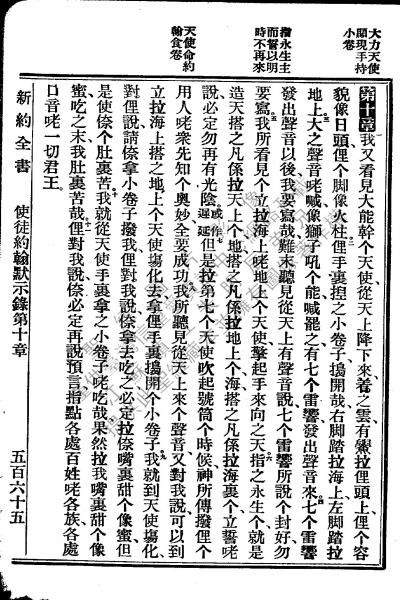 大力天使
顯現手持
小卷
指永生主
而誓以明
時不再來
天使命約
翰食卷
第十章我又看見大能幹个天使從天上降下來、着之雲、有鱟拉俚頭上、俚个容
貌像日頭、俚个脚像火柱、俚手裏揑之小卷子搨開哉、右脚踏拉海上、左脚踏拉
地上、大之聲音咾喊、像獅子吼个能、喊罷之、有七个雷響發出聲音來、七个雷響
發出聲音以後、我要寫哉、難末聽見從天上有聲音說、七个雷響所說个封好、勿
要寫。我所看見个立拉海上咾地上个天使、擎起手來向之天、指之永生个、就是
造天搭之凡係拉天上个、地搭之凡係拉地上个、海搭之凡係拉海裏个、立誓咾
說、必定勿再有光陰、或作遲延但是拉第七个天使吹起號筒个時候、神所傳撥俚个
用人咾衆先知个奧妙、全要成功。我所聽見從天上來个聲音、又對我說、可以到
立拉海上搭之地上个天使塲化去、拿俚手裏搨開个小卷子、我就到天使塲化、
對俚說、請倷拿小卷子撥我、俚對我說、倷拿去吃之、必定拉倷嘴裏甜个像蜜、但
是使倷个肚裏苦。我就從天使手裏拿之小卷子咾吃哉、果然拉我嘴裏甜个像
蜜、吃之末我肚裏苦哉。俚對我說、倷必定再說預言、指點各處百姓咾各族各處
口音咾一切君王。
新約全書　使徒約翰默示錄第十章　五百六十五